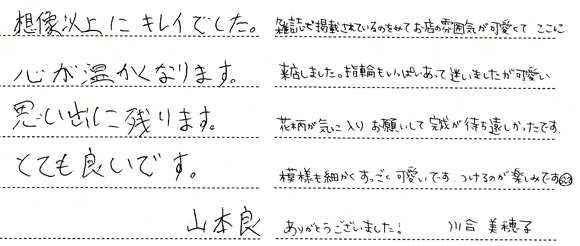 想像以上にキレイでした。
心が温かくなります。
思い出に残ります。
とても良いです。
山本良
雑誌で掲載されているのをみてお店の雰囲気が可愛くて ここに
来店しました。指輪もいっぱいあって迷いましたが可愛い
花柄が気に入り お願いして 完成が待ち遠しかったです。
模様も細かくすっごく可愛いです。つけるのが楽しみです
ありがとうございました！ 川合 美穂子